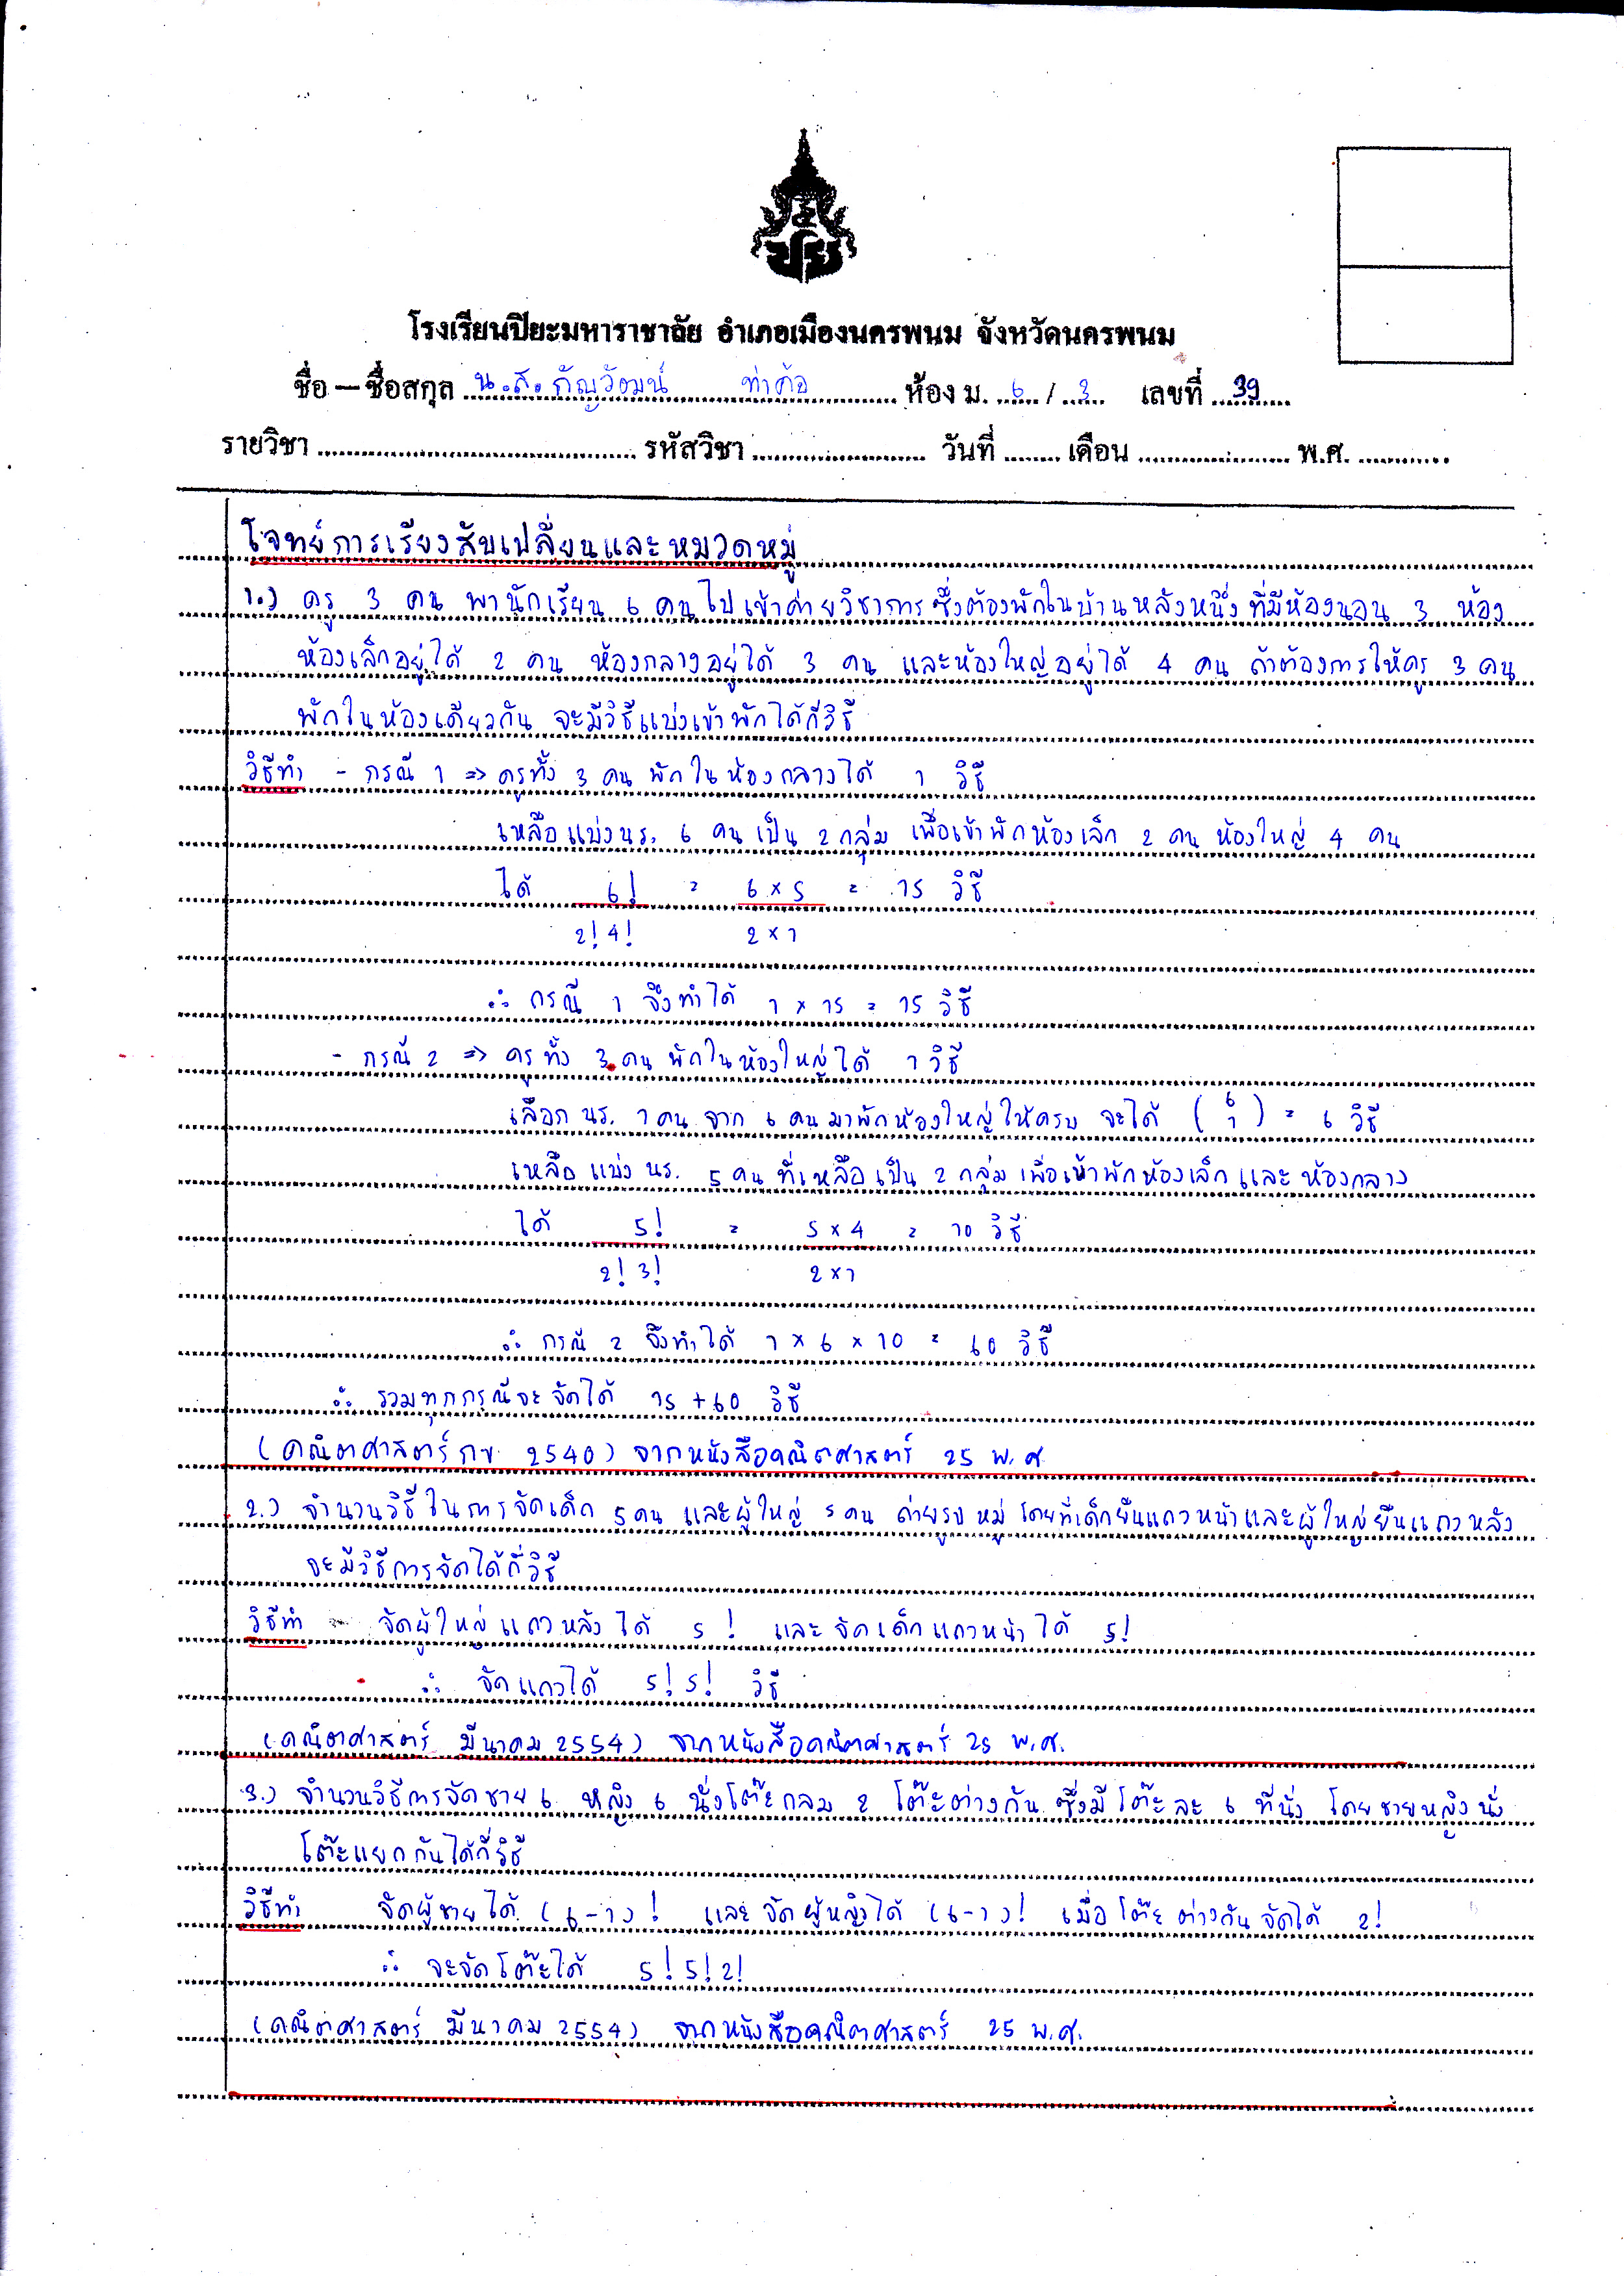 โรงเรียนปิยะมหาราชาลัย อำเภอเมืองนครพนม จังหวัดนครพนม
ชื่อ – ชื่อสกุล น.ส. กัญวัฒน์ ท่าค้อ ห้อง ม. 6 / 3 เลขที่ 39
รายวิชา รหัสวิชา วันที่ เดือน พ.ศ.
โจทย์การเรียงสับเปลี่ยนและหมวดหมู่
1.) ครู 3 คน พานักเรียน 6 คนไปเข้าค่ายวิชาการซึ่งต้องพักในบ้านหลังหนึ่งที่มีห้องนอน 3 ห้อง
ห้องเล็กอยู่ได้ 2 คน ห้องกลางอยู่ได้ 3 คน และห้องใหญ่อยู่ได้ 4 คน ถ้าต้องการให้ครู 3 คน
พักในห้องเดียวกัน จะมีวิธีแบ่งเข้าพักได้กี่วิธี
วิธีทำ - กรณี 1 => ครูทั้ง 3 คน พักในห้องกลางได้ 1 วิธี
เหลือแบ่งนร. 6 คนเป็น 2 กลุ่ม เพื่อเข้าพักห้องเล็ก 2 คน ห้องใหญ่ 4 คน
ได้ 6! = 6 x 5 = 15 วิธี
2!4! 2 x 1
∴ กรณี 1 จึงทำได้ 1 x 15 = 15 วิธี
- กรณี 2 => ครูทั้ง 3 คน พักในห้องใหญ่ได้ 1 วิธี
เลือก นร. 1 คน จาก 6 คนมาพักห้องใหญ่ให้ครบ จะได้ (6 1) = 6 วิธี
เหลือ แบ่ง นร. 5 คน ที่เหลือเป็น 2 กลุ่ม เพื่อเข้าพักห้องเล็กและห้องกลาง
ได้ 5! = 5 x 4 = 10 วิธี
2!3! 2 x 1
∴ กรณี 2 จึงทำได้ 1 x 6 x 10 = 60 วิธี
∴ รวมทุกกรณีจะจัดได้ 15 + 60 วิธี
(คณิตศาสตร์ กข. 2540) จากหนังสือคณิตศาสตร์ 25 พ.ศ.
2.) จำนวนวิธีในการจัดเด็ก 5 คน และผู้ใหญ่ 5 คน ถ่ายรูปหมู่ โดยที่เด็กยืนแถวหน้าและผู้ใหญ่ยืนแถวหลัง
จะมีวิธีการจัดได้กี่วิธี
วิธีทำ - จัดผู้ใหญ่แถวหลังได้ 5! และจัดเด็กแถวหน้าได้ 5!
∴ จัดแถวได้ 5!5! วิธี
(คณิตศาสตร์ มีนาคม 2554) จากหนังสือคณิตศาสตร์ 25 พ.ศ.
3.) จำนวนวิธีการจัดชาย 6 หญิง 6 นั่งโต๊ะกลม 2 โต๊ะต่างกัน ซึ่งมีโต๊ะละ 6 ที่นั่ง โดยชายหญิงนั่ง
โต๊ะแยกกันได้กี่วิธี
วิธีทำ จัดผู้ชายได้ (6-1)! และจัดผู้หญิงได้ (6-1)! เมื่อโต๊ะต่างกันจัดได้ 2!
∴ จะจัดโต๊ะได้ 5!5!2!
(คณิตศาสตร์ มีนาคม 2554) จากหนังสือคณิตศาสตร์ 25 พ.ศ.